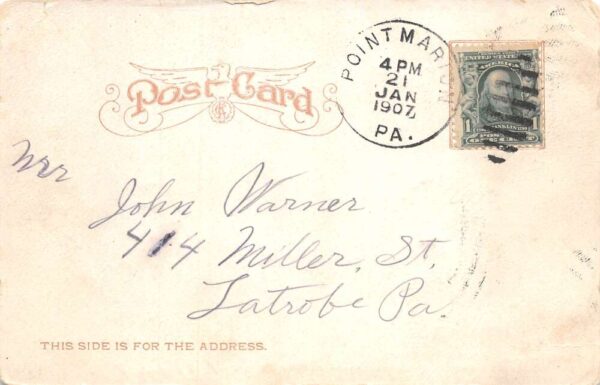 Post Card
POINT MARION
4 PM
21
JAN
1907
PA.
UNITED STATES
AMERICA
1 1
Mr
John Warner
414 Miller, St,
Latrobe Pa.
THIS SIDE IS FOR THE ADDRESS.